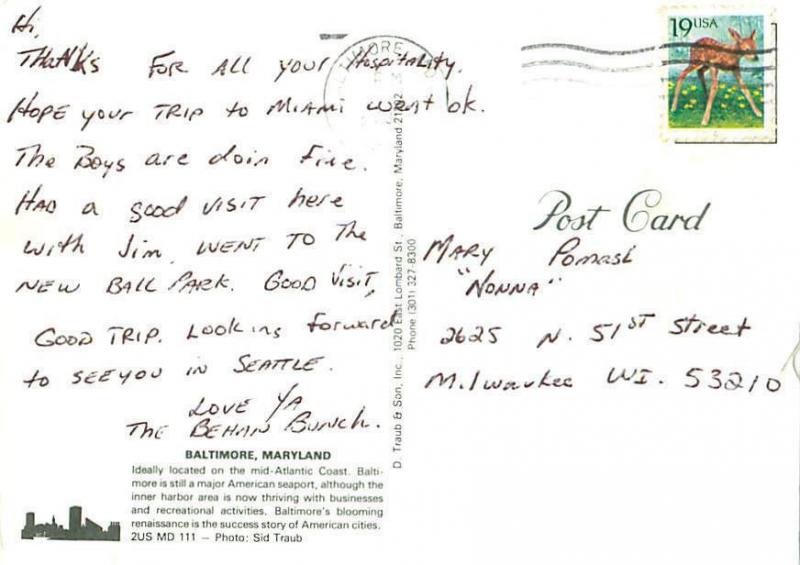 Hi,
THANKS FOR ALL YOUR Hospitality.
HOPE YOUR TRIP to MIAMI WENT OK.
The Boys are doin Fine.
HAD a good VISIT here
with Jim, WENT TO The
NEW BALL PARK. GOOD VISIT,
GOOD TRIP. Looking forward
to SEE YOU IN SEATTLE.
LOVE YA
THE BEHAN BUNCH.
BALTIMORE, MARYLAND
Ideally located on the mid-Atlantic Coast. Balti-
more is still a major American seaport, although the
inner harbor area is now thriving with businesses
and recreational activities. Baltimore's blooming
renaissance is the success story of American cities.
2US MD 111 – Photo: Sid Traub
D. Traub & Son, Inc., 1020 East Lombard St., Baltimore, Maryland 21202
Phone (301) 327-8300
19 USA
Post Card
MARY Pomasl
"NONNA"
2625 N. 51ST Street
Milwaukee WI. 53210